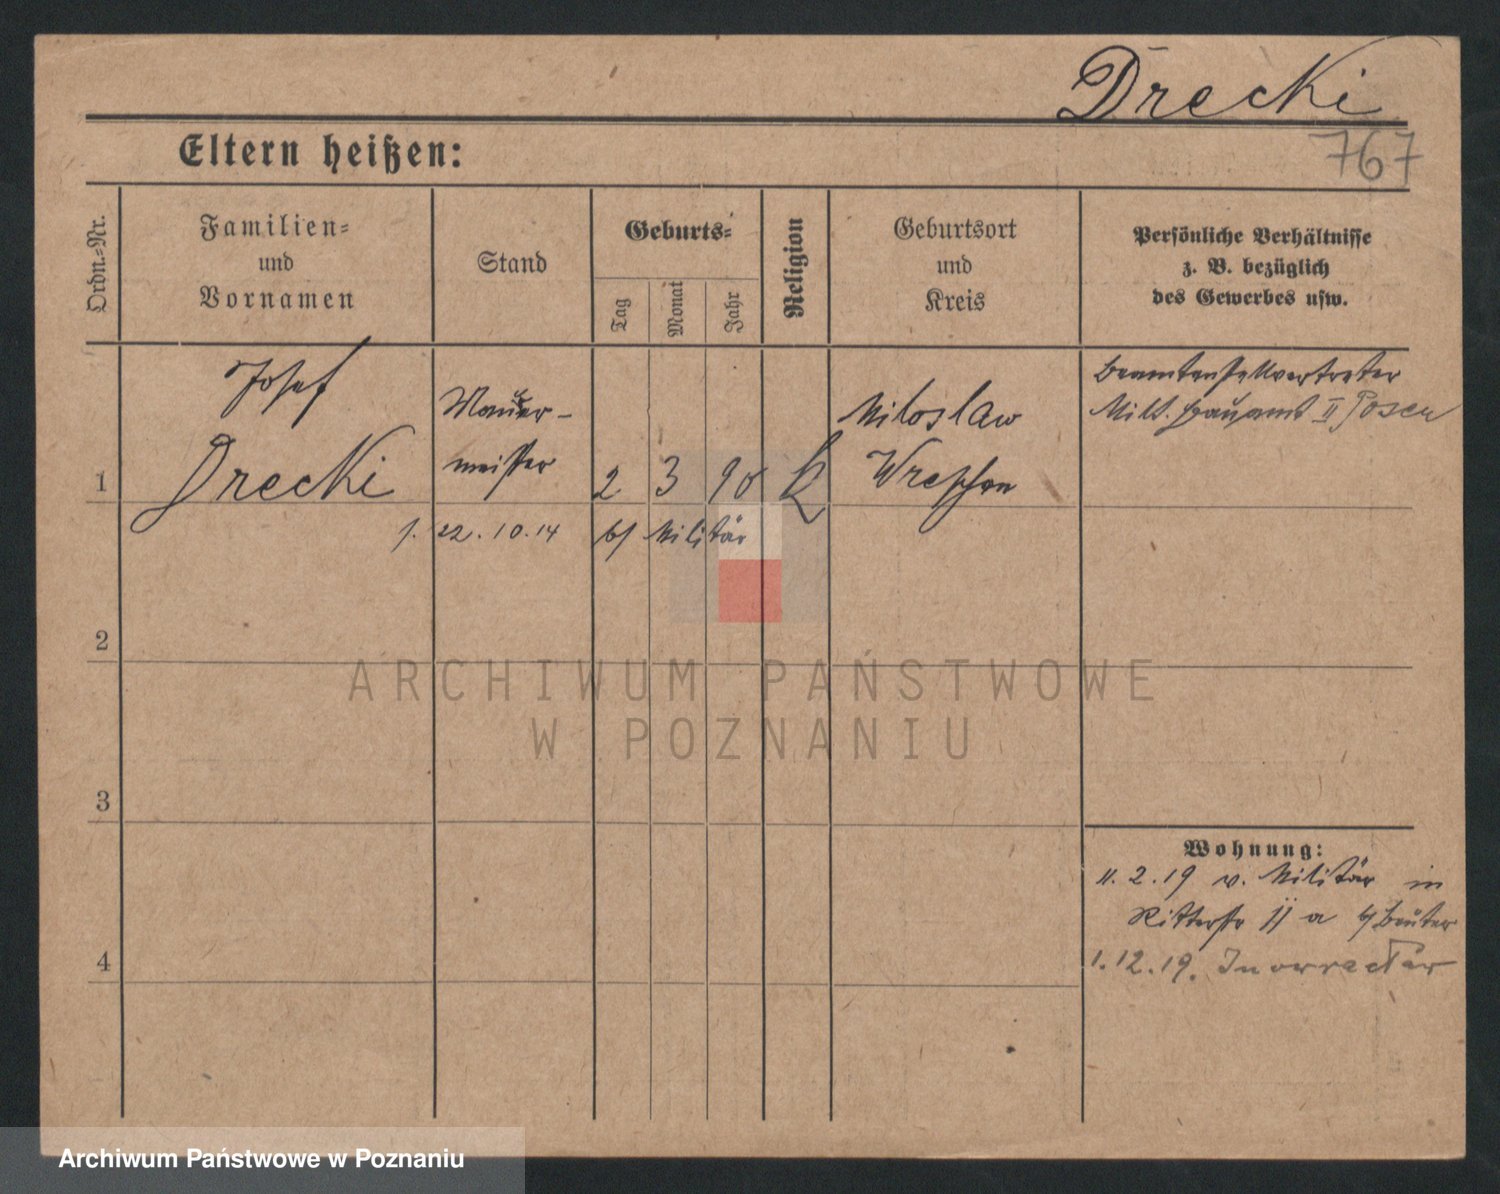 Drecki
767
Eltern heißen:
Ordn.-Nr.
Familien-
und
Vornamen
Stand
Geburts-
Tag
Monat
Jahr
Religion
Geburtsort
und
Kreis
Persönliche Verhältnisse
z. B. bezüglich
des Gewerbes usw.
1
Josef
Drecki
Maurer-
meister
2 3 90
k
Miloslaw
Wreschen
Beamtenstellvertreter
Milt. Bauamt II Posen
22.10.14 Militär
2
3
4
Wohnung:
11.2.19 v. Militär in
Ritterstr 11 a
1.12.19.
ARCHIWUM PAŃSTWOWE
W POZNANIU
Archiwum Państwowe w Poznaniu